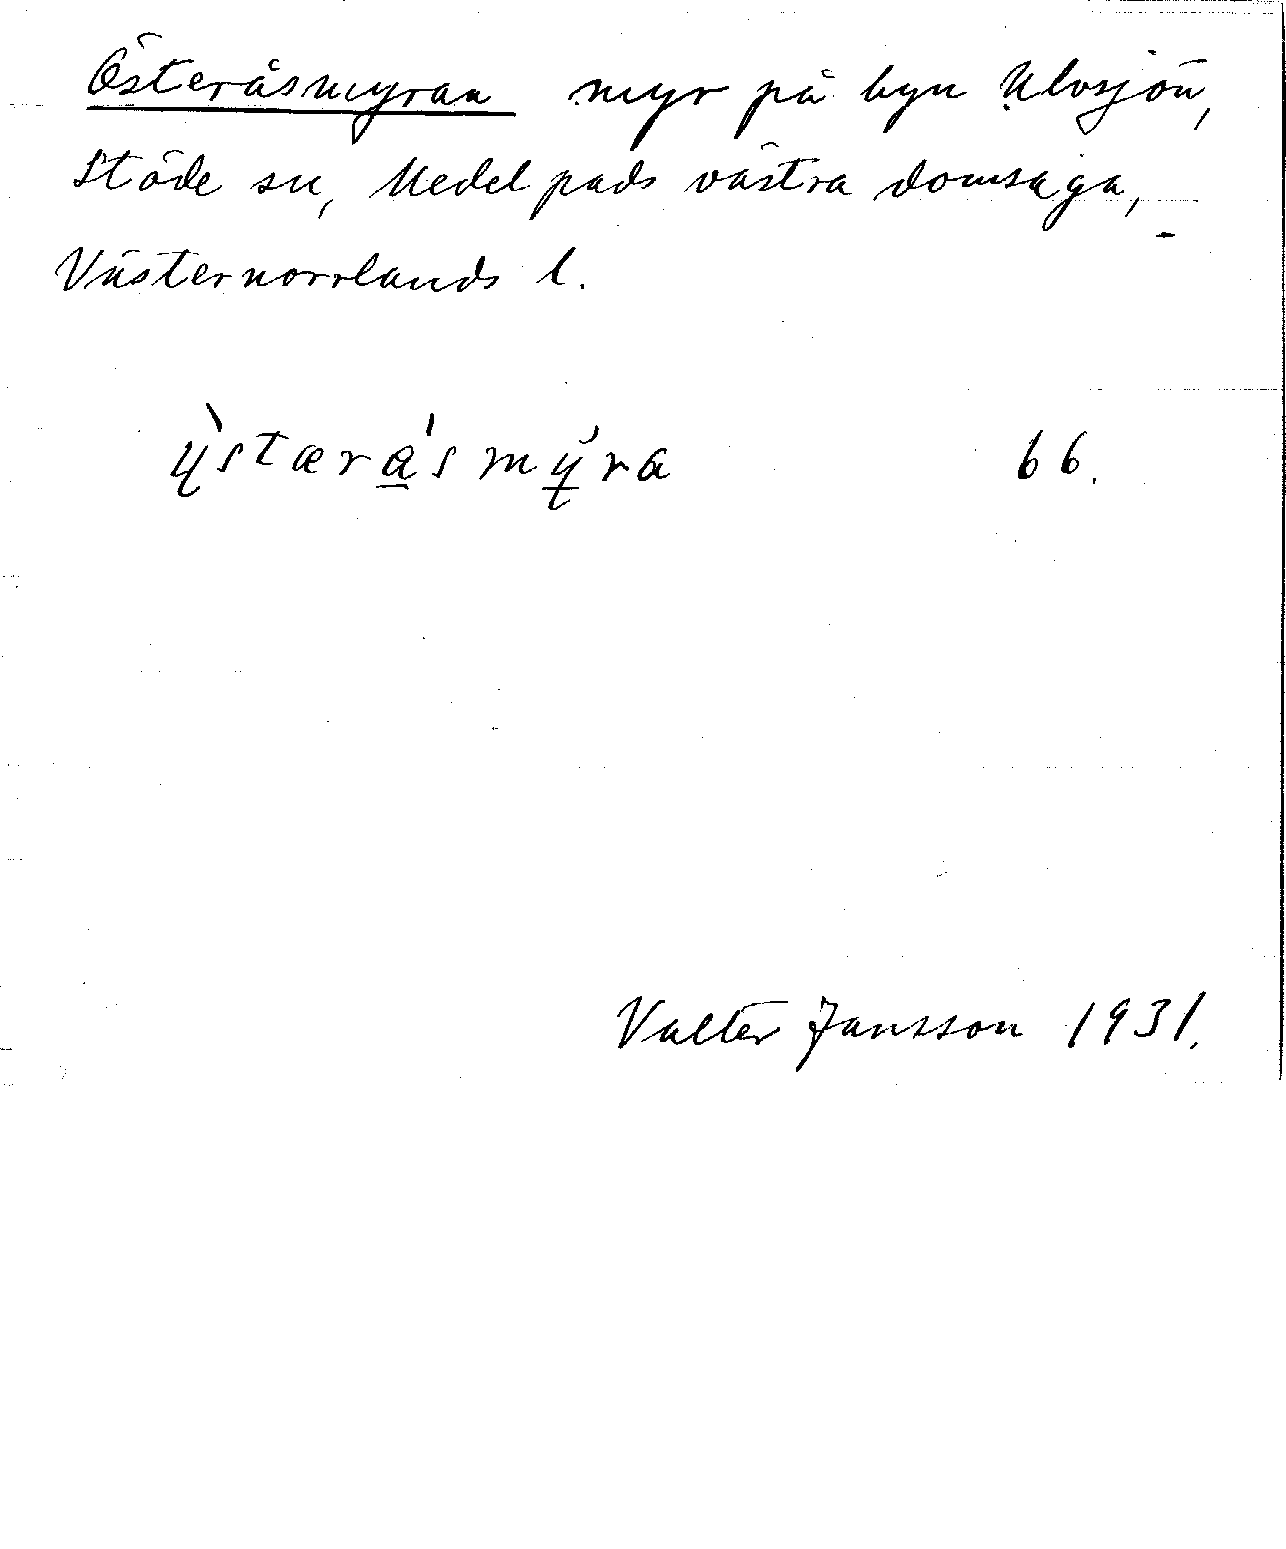 Österåsmyran myr på byn Ulvsjön,
Stöde sn, Medelpads västra domsaga,
Västernorrlands l.
ỳstæra̲smy̲ra 66.
Valter Jansson 1931.